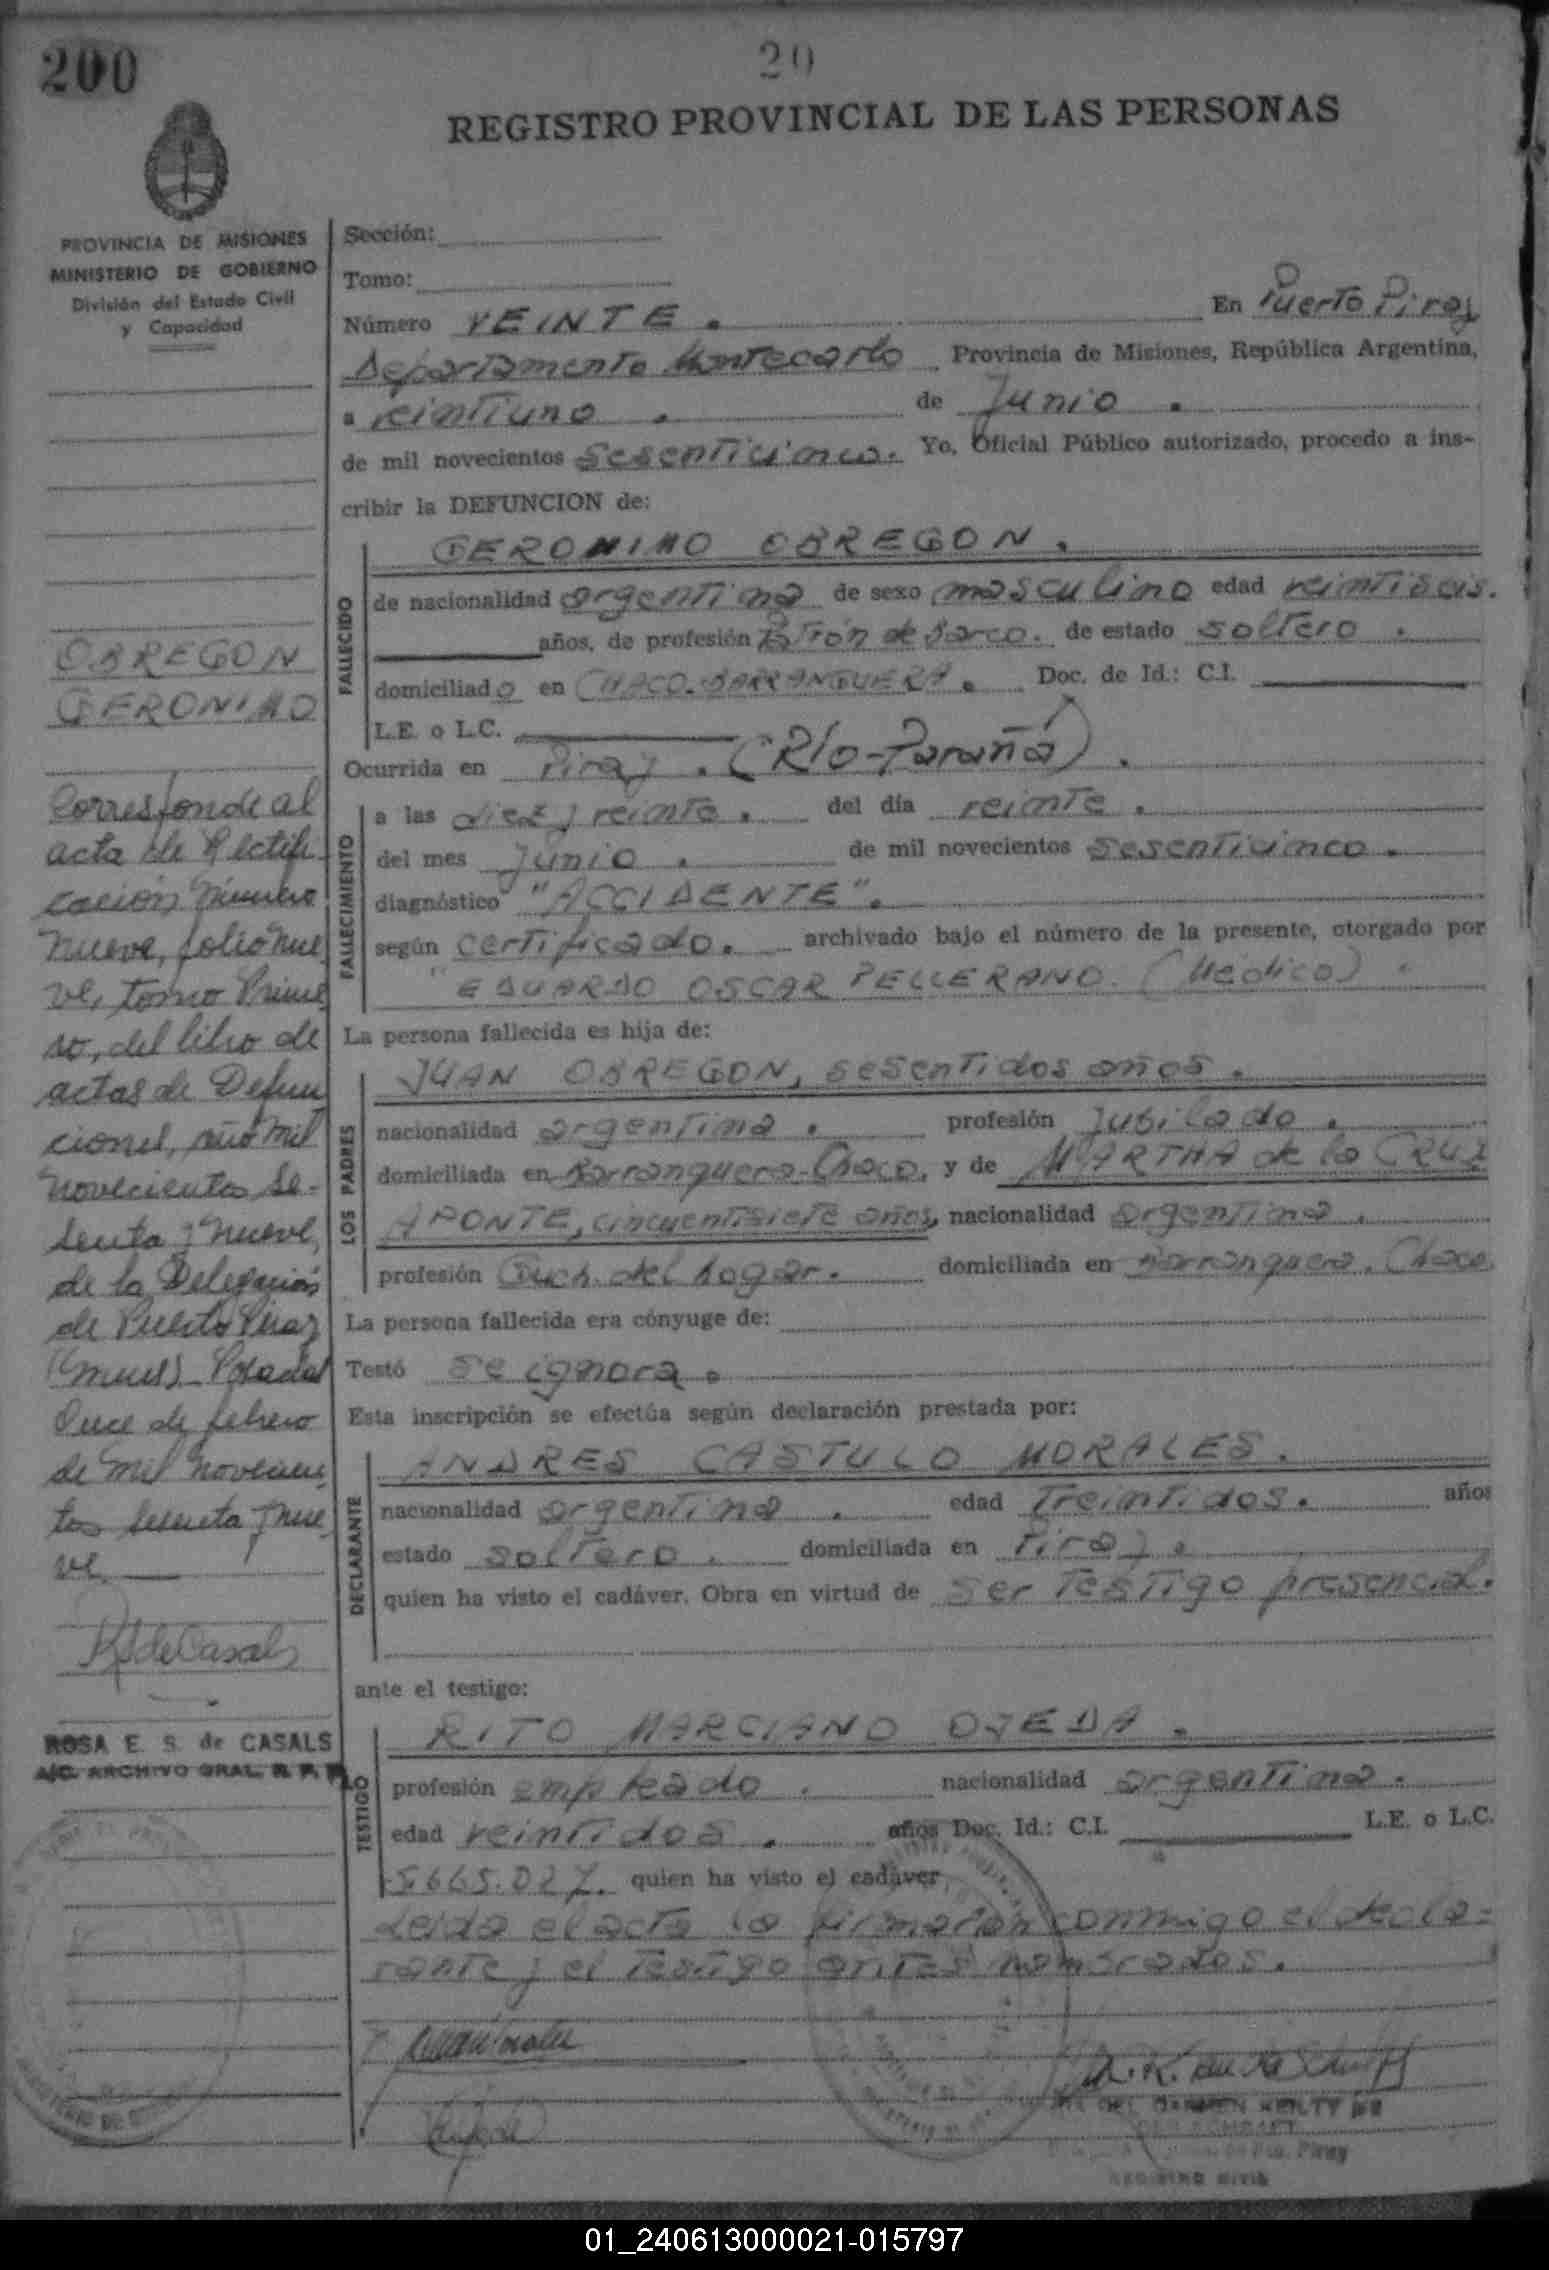 200
20
REGISTRO PROVINCIAL DE LAS PERSONAS
PROVINCIA DE MISIONES
MINISTERIO DE GOBIERNO
División del Estado Civil
y Capacidad
OBREGON
GERONIMO
Corresponde al
acta de Rectifi-
cación número
nueve, folio nue
ve, tomo Prime
ro, del libro de
actas de Defun
ciones, año mil
novecientos se-
senta y nueve,
de la Delegación
de Puerto Piray
(Mnes). Posadas
Once de febrero
de mil novecien
tos sesenta y nue
ve.
R S de Casals
ROSA E. S. de CASALS
A/C. ARCHIVO GRAL. R. P. P.
Sección:
Tomo:
Número VEINTE. En Puerto Piray
Departamento Montecarlo Provincia de Misiones, República Argentina,
a veintiuno. de Junio.
de mil novecientos sesenticinco. Yo, Oficial Público autorizado, procedo a ins-
cribir la DEFUNCION de:
FALLECIDO
GERONIMO OBREGON.
de nacionalidad argentina de sexo masculino edad veintiseis.
años, de profesión Patrón de Barco. de estado soltero.
domiciliado en CHACO-BARRANQUERA. Doc. de Id.: C.I.
L.E. o L.C.
Ocurrida en Piray. (Río-Paraná).
FALLECIMIENTO
a las diez y veinte. del día veinte.
del mes junio. de mil novecientos sesenticinco.
diagnóstico "ACCIDENTE".
según certificado. archivado bajo el número de la presente, otorgado por
"EDUARDO OSCAR PELLERANO. (Médico).
La persona fallecida es hija de:
LOS PADRES
JUAN OBREGON, sesentidos años.
nacionalidad argentina. profesión Jubilado.
domiciliada en Barranquera-Chaco, y de MARTHA de la CRUZ
APONTE, cincuentisiete años, nacionalidad argentina.
profesión Queh. del hogar. domiciliada en Barranquera. Chaco.
La persona fallecida era cónyuge de:
Testó se ignora.
Esta inscripción se efectúa según declaración prestada por:
DECLARANTE
ANDRES CASTULO MORALES.
nacionalidad argentina. edad Treintidos. años
estado soltero. domiciliada en Piray.
quien ha visto el cadáver. Obra en virtud de ser testigo presencial.
ante el testigo:
TESTIGO
RITO MARCIANO OJEDA.
profesión empleado. nacionalidad argentina.
edad veintidos. años Doc. Id.: C.I. L.E. o L.C.
5.665.027. quien ha visto el cadáver,
Leída el acta la firmaron conmigo el decla-
rante y el testigo antes nombrados.
DEL CARMEN
Pto. Piray
REGISTRO CIVIL
01_240613000021-015797